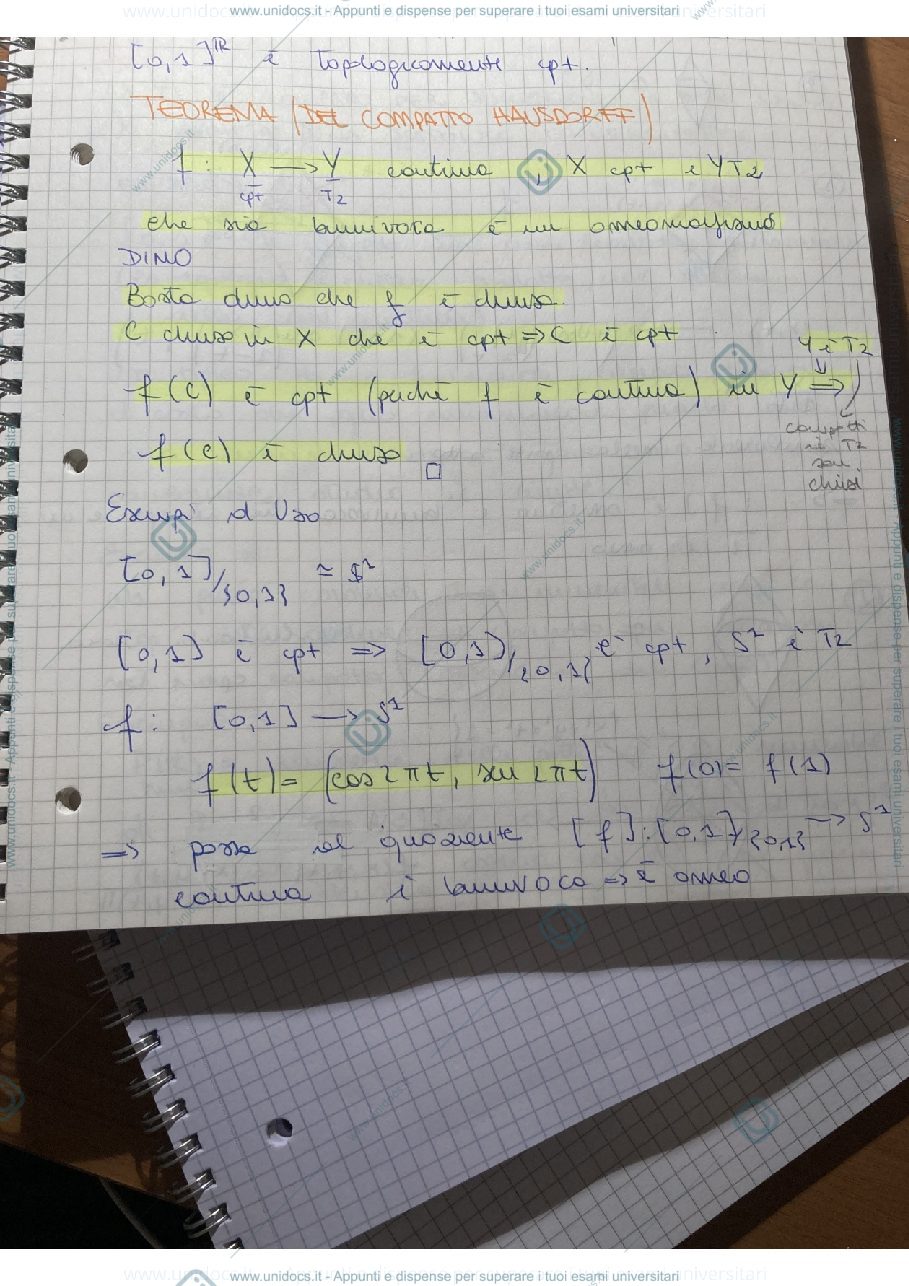 www.unidocs.it - Appunti e dispense per superare i tuoi esami universitari
[0,1]^ℝ è topologicamente cpt.
TEOREMA (DEL COMPATTO HAUSDORFF)
f: X → Y continua, X cpt e Y T2
cpt T2
che sia biunivoca è un omeomorfismo
DIMO
Basta dimo che f è chiusa.
C chiuso in X che è cpt ⇒ C è cpt
Y è T2
f(C) è cpt (perché f è continua) in Y ⇒
compatti
in T2
son
chiusi
f(C) è chiuso □
Esempi d Uso
[0,1]/{0,1} ≃ S¹
[0,1] è cpt ⇒ [0,1]/{0,1} è cpt, S¹ è T2
f: [0,1] → S¹
f(t) = (cos 2πt, sen 2πt) f(0) = f(1)
⇒ passa al quoziente [f]: [0,1]/{0,1} → S¹
continua è biunivoca ⇒ è omeo
www.unidocs.it - Appunti e dispense per superare i tuoi esami universitari